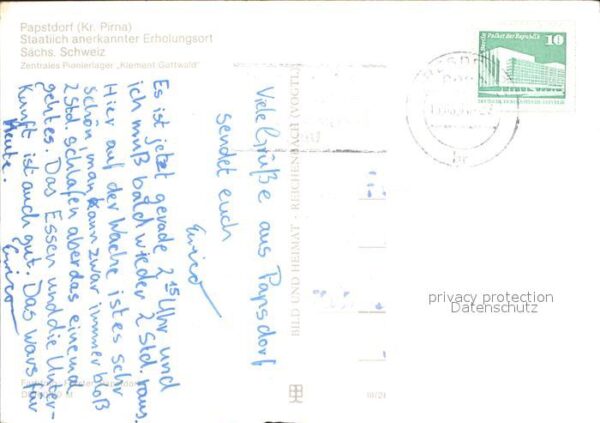 Papstdorf (Kr. Pirna)
Staatlich anerkannter Erholungsort
Sächs. Schweiz
Zentrales Pionierlager „Klement Gottwald"
Berlin Palast der Republik
10
BILD UND HEIMAT · REICHENBACH (VOGTL)
Viele Grüße aus Papsdorf
sendet euch
Enrico
Es ist jetzt gerade 2¹⁵ Uhr und
ich muß bald wieder 2 Std. raus.
Hier auf der Wache ist es sehr
schön, man kann zwar immer bloß
2 Std. schlafen aber das einemal
geht es. Das Essen und die Unter-
kunft ist auch gut. Das wars für
Heute.
Enrico
privacy protection
Datenschutz